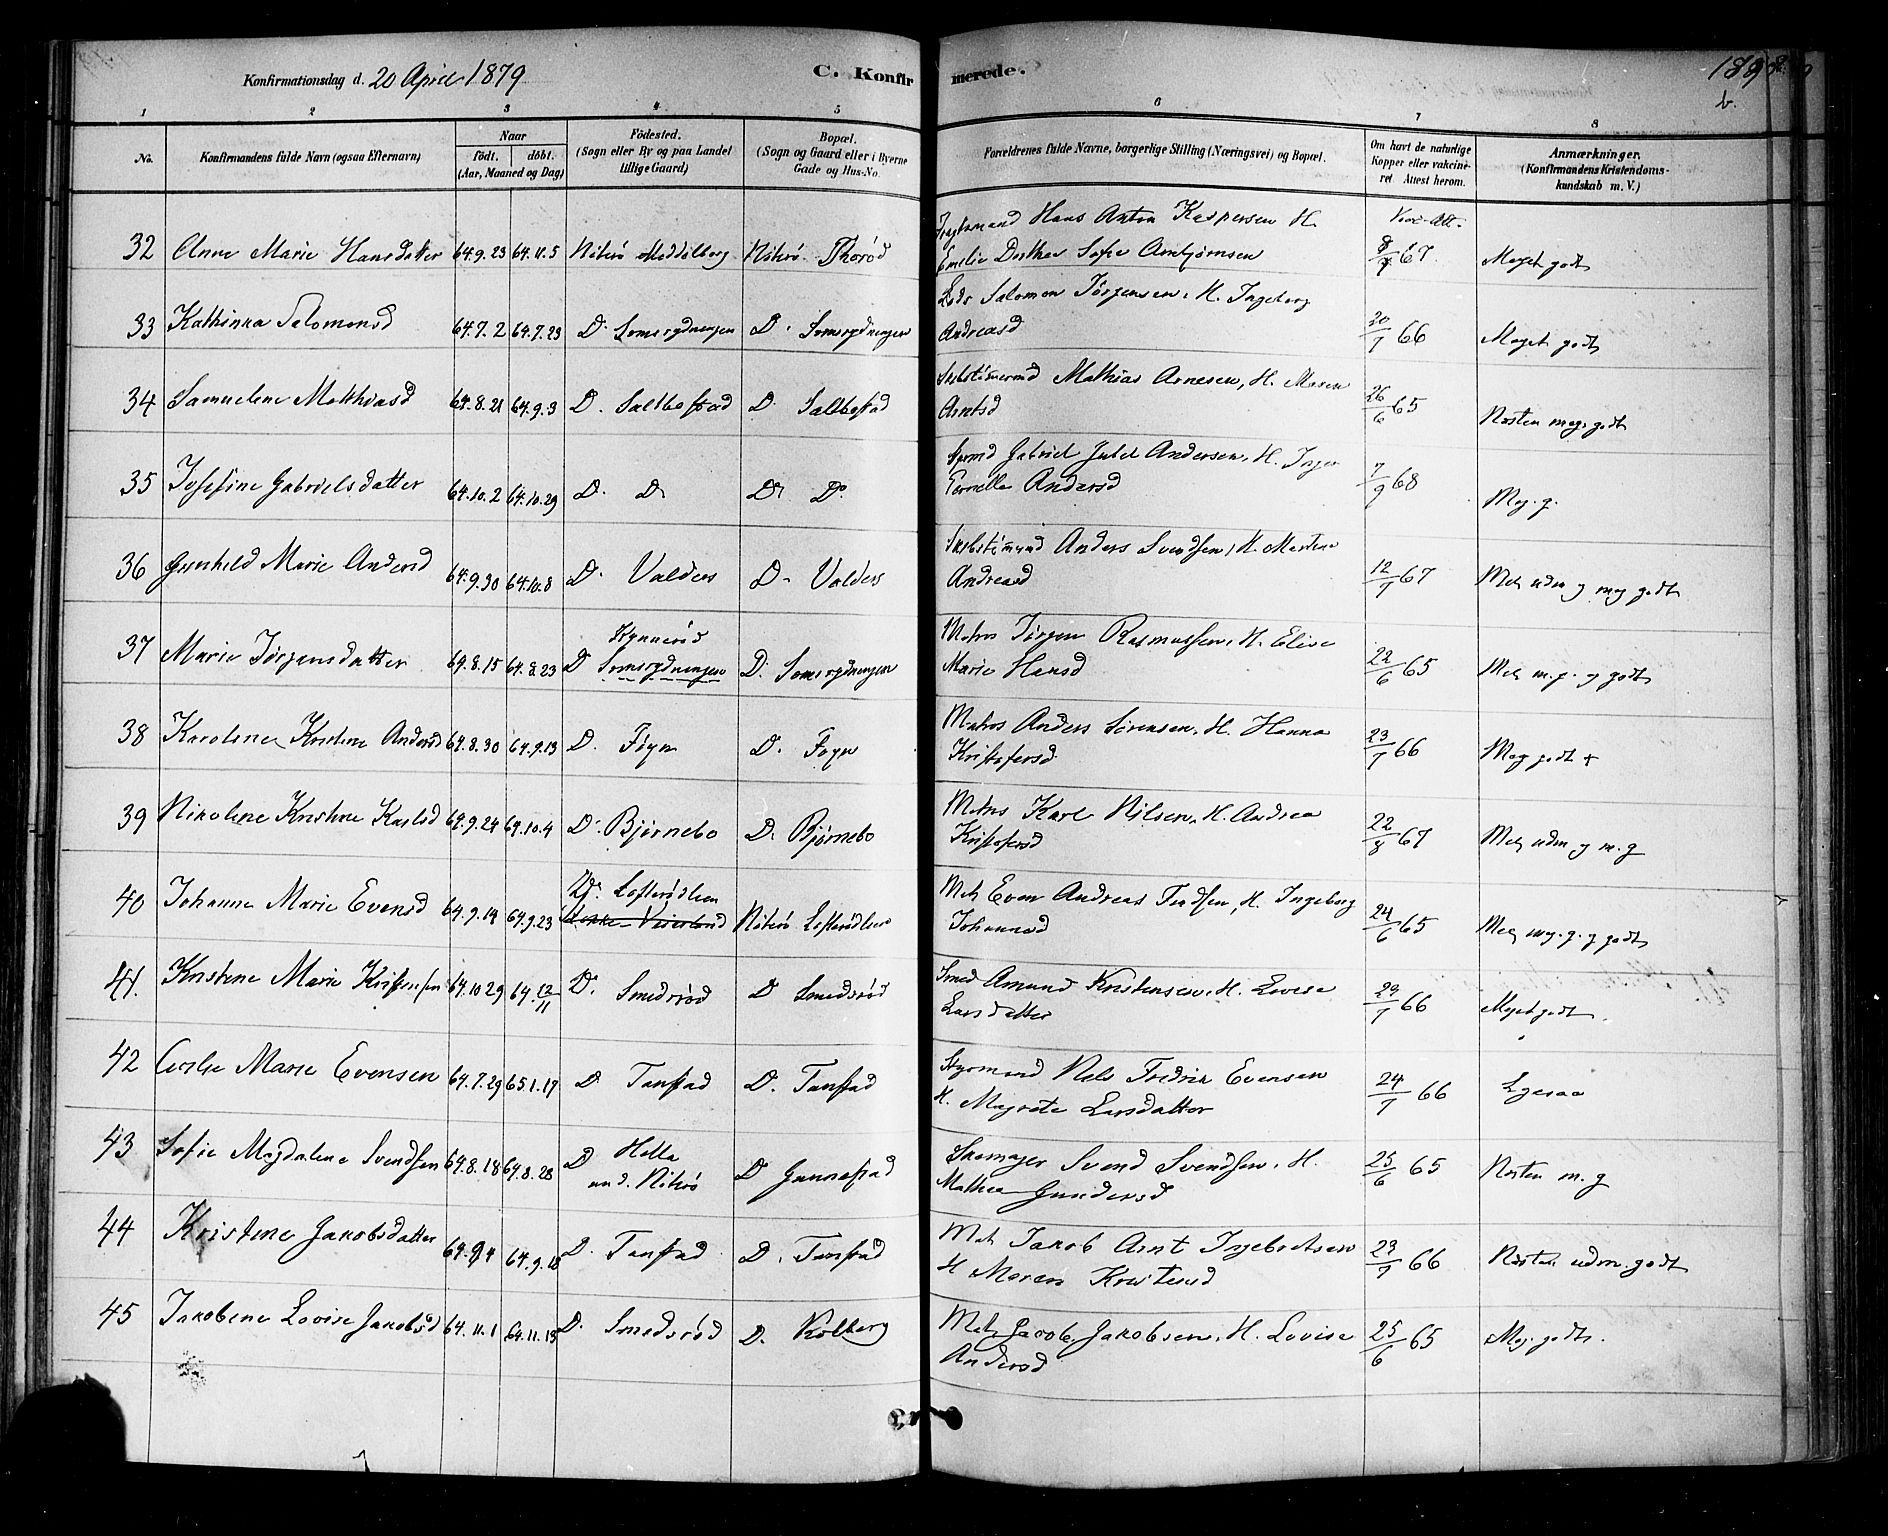 Konfirmationsdag d. 20 April 1879 C. Konfirmerede. 189
b.
1 2 3 4 5 6 7 8
No. Konfirmandens fulde Navn (ogsaa Efternavn) Naar födt. döbt. (Aar, Maaned og Dag) Födested. (Sogn eller By og paa Landet tillige Gaard) Bopæl. (Sogn og Gaard eller i Byerne Gade og Hus-No. Forældrenes fulde Navne, borgerlige Stilling (Næringsvei) og Bopæl. Om havt de naturlige Kopper eller vakcineret Attest herom. Anmærkninger. (Konfirmandens Kristendomskundskab m. V.)
32 Anne Marie Hansdatter 64.9.23 64.11.5 Nöterö Nöterö Thoröd Hans Anton Kaspersen H. Emelie Dorthea Sofie 8/7 67 Meget godt
33 Kathinka Salomonsd 64.7.2 64.7.23 D. Somsrydningen D. Somsrydningen Salomon Törgensen, H. Ingeborg Andreasd 20/7 66 Meget godt
34 Samueline Matthiasd 64.8.21 64.9.3 D. Saltbostad D. Saltbostad Mathias Arnesen, H. Maren Arntsd 26/6 65 Næsten meg. godt
35 Josefine Gabrielsdatter 64.10.2 64.10.29 D. D D. D. Gabriel Juhl Andersen, H. Inger Pernelle Andersd 7/9 68 Meg. g.
36 Gunhild Marie Andersd 64.9.30 64.10.8 D. Valders D. Valders Anders Svendsen, H. Martine Andreasd 12/7 67 Mel. udm. og meg godt
37 Marie Jörgensdatter 64.8.15 64.8.23 D Kynneröd Somsrydningen D. Somsrydningen Matros Jörgen Rasmussen, H. Elise Marie Hansd 22/6 65 Mel. m.g. og godt
38 Karoline Kristine Andersd 64.8.30 64.9.13 D. Föyn D. Föyn Matros Anders Sörensen, H. Hanna Kristofersd. 23/7 66 Meg godt +
39 Nikoline Kristine Karlsd 64.9.24 64.10.4 D. Björnebo D. Björnebo Matros Karl Nilsen, H. Andrea Kristofersd 22/8 67 Mel. udm og m.g
40 Johanne Marie Evensd 64.9.14 64.9.23 D. Lofterödlien Nöterö Lofterödlien Mat. Even Andreas H. Ingeborg Johannesd 24/6 65 Mel. meg. g. og godt
41. Kristine Marie Kristensen 64.10.29 64.12/11 D. Smedsröd D Smedsröd Smed Amund Kristensen, H. Lovise Larsdatter 29/7 66 Meget godt.
42 Marie Evensen 64.7.29 65.1.17 D Tanstad D. Tanstad Styrmand Nels Fredrik Evensen H. Magrete Larsdatter 24/7 66 Ligesaa
43 Sofie Magdalene Svendsen 64.8.18 64.8.28 D Hella und. Nöterö D Gunnestad Skomager Svend Svendsen, H. Mathea Gundersd 25/6 65 Næsten m.g
44 Kristine Jakobsdatter 64.9.4 64.9.18 D. Tanstad D. Tanstad Mat. Jakob Arnt Ingebretsen H Maren Kristensd 23/7 66 Næsten udm. godt
45 Jakobine Lovise Jakobsd 64.11.1 64.11.13 D. Smedsröd D. Kolberg Mat. Jacob Jakobsen, H. Lovise Andersd 25/6 65 Meg. godt.